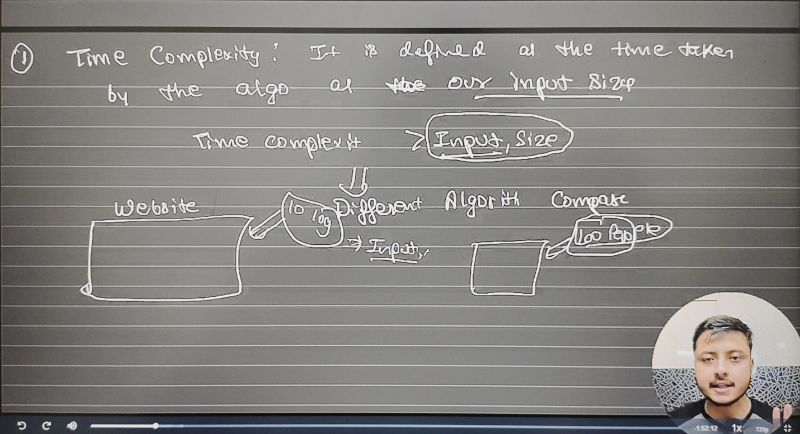 ① Time Complexity: It is defined as the time taken
by the algo as our input size
Time complexit > Input, Size
Different Algorith Compare
Website
10 log
100 People
⇒ Input,
-1:52:12 1x 720p